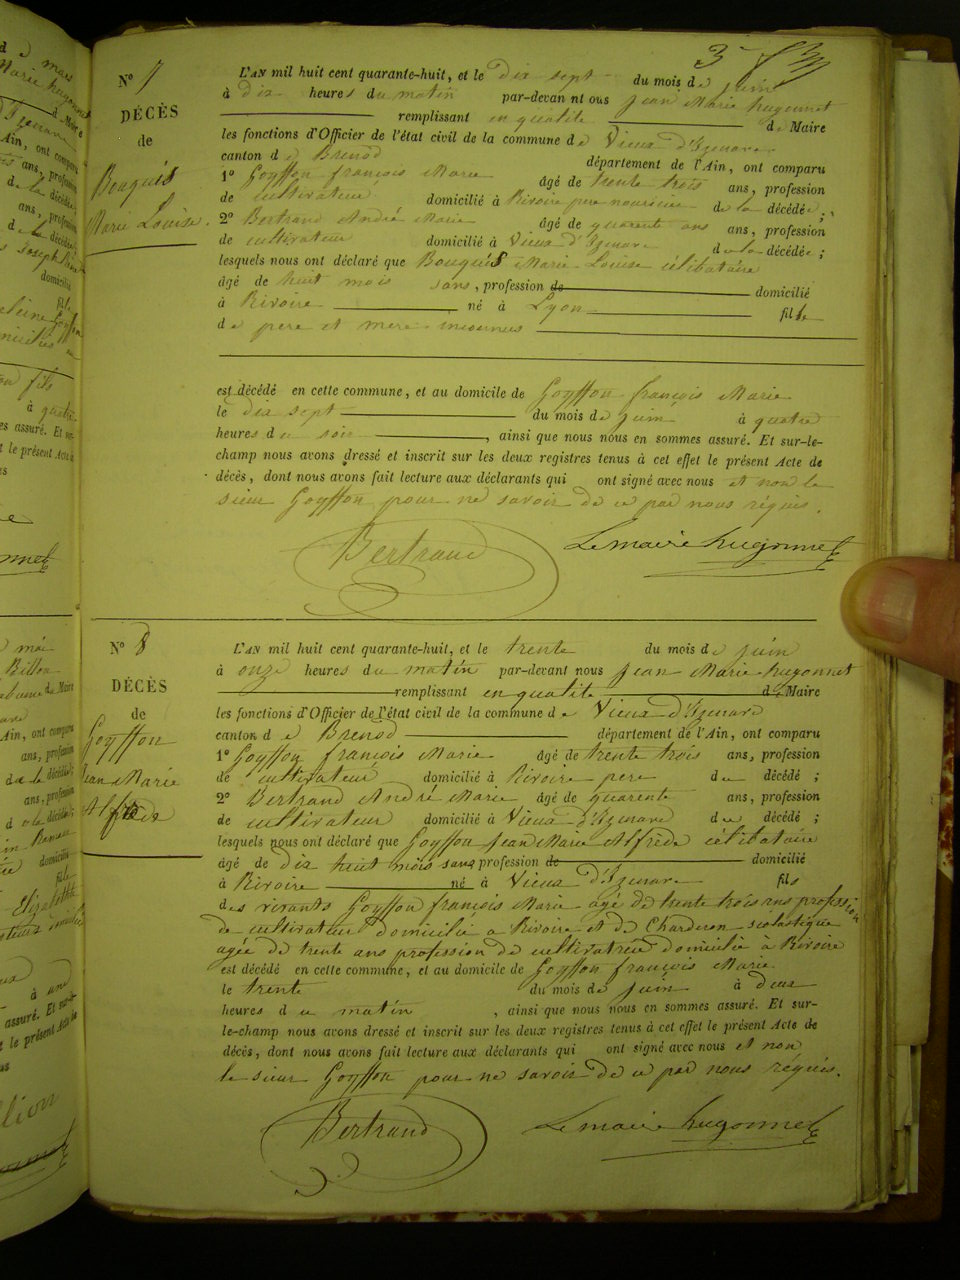 3
N° 7
DÉCÈS
de
Bouquis
Marie Louise.
L'AN mil huit cent quarante-huit, et le dix sept du mois de juin
à dix heures du matin par-devan nt ous jean Marie hugonnet
remplissant en qualité de Maire
les fonctions d'Officier de l'état civil de la commune de Vieux d'Izenave
canton de Brenod département de l'Ain, ont comparu
1° Goyffon françois Marie âgé de trente trois ans, profession
de cultivateur domicilié à Rivoire père nouricier de la décédée;
2° Bertrand André Marie âgé de quarente ans ans, profession
de cultivateur domicilié à Vieux d'Izenave de la décédée;
lesquels nous ont déclaré que Bouquis Marie Louise célibataire
âgé de huit mois sans, profession de domicilié
à Rivoire né à Lyon fille
de père et mère inconnus
est décédé en cette commune, et au domicile de Goyffon françois Marie
le dix sept du mois de juin à quatre
heures du soir, ainsi que nous nous en sommes assuré. Et sur-le-
champ nous avons dressé et inscrit sur les deux registres tenus à cet effet le présent Acte de
décès, dont nous avons fait lecture aux déclarants qui ont signé avec nous et non le
sieur Goyffon pour ne savoir de ce par nous réquis.
Bertrand Le maire hugonnet
N° 8
DÉCÈS
de
Goyffon
jean Marie
Alfrède
L'AN mil huit cent quarante-huit, et le trente du mois de juin
à onze heures du matin par-devant nous jean Marie hugonnet
remplissant en qualité de Maire
les fonctions d'Officier de l'état civil de la commune de Vieux d'Izenave
canton de Brenod département de l'Ain, ont comparu
1° Goyffon françois Marie âgé de trente trois ans, profession
de cultivateur domicilié à Rivoire père du décédé;
2° Bertrand André Marie âgé de quarente ans, profession
de cultivateur domicilié à Vieux d'Izenave du décédé;
lesquels nous ont déclaré que Goyffon jean Marie Alfrède célibataire
âgé de dix huit mois sans profession de domicilié
à Rivoire né à Vieux d'Izenave fils
des vivants Goyffon françois Marie agé de trente trois ans profession
de cultivateur domicilié a Rivoire et de Charderon scolastique
agée de trente ans profession de cultivatrice domicilié à Rivoire
est décédé en cette commune, et au domicile de Goyffon françois Marie
le trente du mois de juin à deux
heures du matin, ainsi que nous nous en sommes assuré. Et sur-
le-champ nous avons dressé et inscrit sur les deux registres tenus à cet effet le présent Acte de
décès, dont nous avons fait lecture aux déclarants qui ont signé avec nous et non
le sieur Goyffon pour ne savoir de ce par nous réquis.
Bertrand Le maire hugonnet